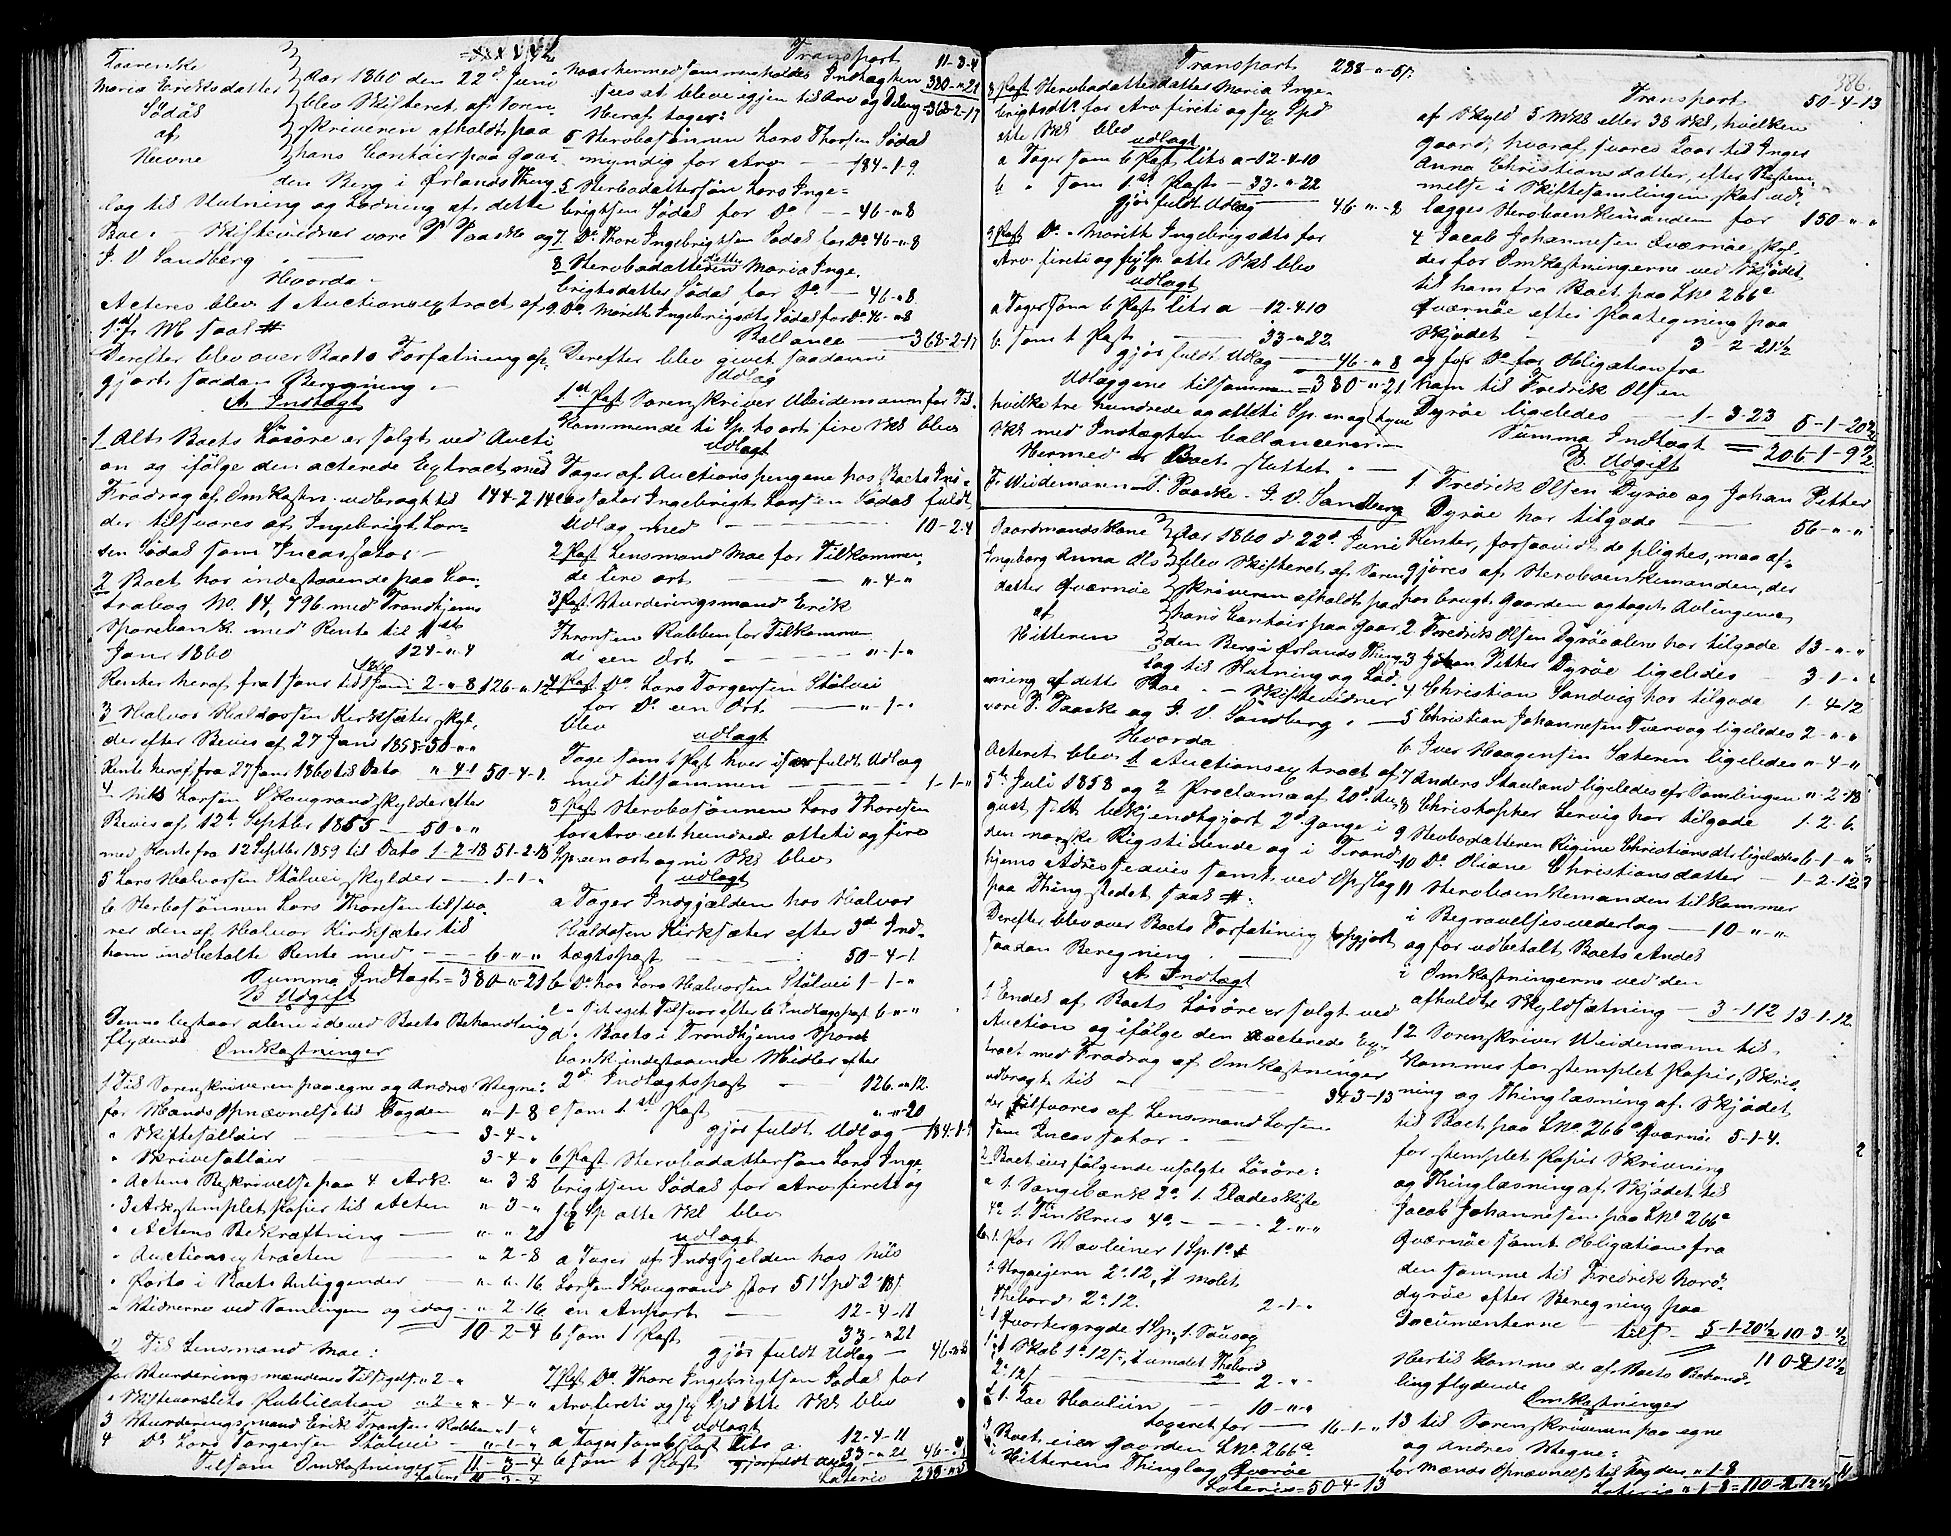 Maria Eriksdatter
Södás
af
Hevne
Aar 1860 den 22de Juni
blev Skifteret af Soren-
skriveren afholdt paa
hans Contoir paa Gaar-
den Berg i Ørlands Thing-
lag til Slutning og Lodning af dette
Boe. - Skiftevidner vare P Paaske og
J. V Sandberg. -
Hvorda -
Acteres blev 1 Auctionsextract af
Derefter blev over Boets Forfatning op-
gjort saadan Beregning. -
A. Indtægt
1 Alt Boets Løsøre er solgt ved Aucti
on og ifølge den acterede Extract med
Fradrag af Omkostn. udbragt til 144-2-14
der tilsvares af Ingebrigt Lar-
sen Södás som Incassator -
2 Boet har indestaaende paa Con-
trabog No. 14,796 med Trondhjems
Sparebank med Rente til 1ste
Janr 1860 124-"-4
Renter heraf fra 1 Janr til 1 Juni 2-"-8 126-"-12
3 Halvor Haldorsen Kirksæter skyl-
der efter Bevis af 27 Janr 1855 50-"-"
Rente heraf fra 27 Janr 1860 til Dato "-4-1 50-4-1.
4 Nils Larsen Skougrand skylder efter
Bevis af 12te Septbr 1855 - 50-"-"
med Rente fra 12 Septbr 1859 til Dato 1-2-18 51-2-18
5 Lars Halvorsen Stölvei skylder - 1-1-"
6 Sterbosönnen Lars Thoresen tilsva-
rer den af Halvor Kirksæter til
ham indbetalte Rente med - 6-"-"
Summa Indtægt = 380-"-21
B Udgift
Denne bestaar alene i de ved Boets Behandling
flydende
Omkostninger
1 Til Sorenskriveren paa egne og Andres Vegne:
for Mænds Opnævnelse til Fogden "-1-8
" Skiftesallair 3-4-"
" Skriversallair 3-4-"
" Actens Beskrivelse paa 4 Ark. "-3-8
" 3 Ark stemplet Papir til Acten "-3-"
" Actens Bekræftning "-"-20
" Auctionsextracten "-2-8
" Porto i Boets Anliggender "-"-16
" Vidnerne ved Samlingen og idag "-2-16
10-2-4
2 Til Lensmand Moe:
for Vurderingsmændenes Tilsigelse "-2-"
" Skiftevarslets Publication "-2-" "-4-"
3 Vurderingsmand Erik Tronsen Rabben "-1-"
4 Do Lars Torgersen Stölvei - "-1-"
Tilsam Omkostninger 11-3-4
Lateris 11-3-4
Transport 11-3-4
naar hermed sammenholdes Indtægten 380-"-21
sees at blive igjen til Arv og Deling 368-2-17
Heraf tager:
5 Sterbosönnen Lars Thorsen Södás
myndig for Arv - 184-1-9.
6 Sterbodattersön Lars Inge-
brigtsen Södás for Do - 46-"-8
7. Do Thore Ingebrigtsen Södás for Do 46-"-8
8 Sterbodatterdatter Maria Inge-
brigtsdatter Södás for Do - 46-"-8.
9. Do. Marith Ingebrigtsdtr Södás for Do 46-"-8
Ballance 368-2-17
Derefter blev givet saadann
Udlæg
1ste Post Sorenskriver Weidemann for Til-
kommende ti Sp. to ort fire Skl blev
udlagt
Tager af Auctionspengene hos Boets In-
cassator Ingebrigt Larsen Södás fuldt
Udlæg med 10-2-4
2 Post Lensmand Moe for Tilkommen-
de fire ort "-4-"
3 Post Vurderingsmand Erik
Thronsen Rabben for Tilkommen-
de een Ort "-1-"
4 Post Do Lars Torgersen Stölvei
for Do een Ort "-1-"
blev udlagt
Tage som 1 Post hver især fuldt Udlæg
med tilsammen 1-1-"
5 Post Sterbosönnen Lars Thoresen
for Arv eet hundrede otteti og fire
Sp een ort og ni Skl blev
udlagt
a Tager Indgjælden hos Halvor
Haldorsen Kirksæter efter 3de Ind-
tægtspost 50-4-1
b Do hos Lars Halvorsen Stölvei 1-1-"
c Sit eget Tilsvar efter 6 Indtægtspost 6-"-"
d. Boets i Trondhjems Spare-
bank indestaaende Midler efter
2de Indtægtspost 126-"-12.
e som 1ste Post "-"-20
gjør fuldt Udlæg 184-1-9
6 Post Sterbodattersön Lars Inge-
brigtsen Södás for Arv fireti og
sex Sp otte Skl blev
udlagt
a Tager af Indgjælden hos Nils
Larsen Skougrand for 51 Spd 2 # 18 s
en Anpart 12-4-11
b som 1 Post 33-"-21
gjør fuldt Udlæg - 46-"-8
7 Post Do. Thore Ingebrigtsen Södás for
Arv fireti og sex Spd otte Skl blev
udlagt
a Tager som 6 Post Litr a. 12-4-11
b som 1 Post 33-"-21 46-"-8
gjør fuldt Udlæg
Lateris
Transport 288-"-5.
8 Post Sterbodatterdatter Maria Inge-
brigtsdtr. for Arv fireti og sex Spd
otte Skl blev
udlagt
a Tager som 6 Post, litr a - 12-4-10
b " som 1ste Post - 33-"-22
gjør fuldt Udlæg 46-"-8
9 Post Do. Marith Ingebrigtsdtr for
Arv fireti og sex Sp. otte Skl blev
udlagt
a Tager som 6 Post litr a - 12-4-10
b som 1 Post 33-"-22
gjør fuldt Udlæg 46-"-8
Udlæggene tilsammen = 380-"-21
hvilke tre hundrede og otteti Sp en og tyve
Skl med Indtægten ballancerer. -
Hermed er Boet sluttet. -
Fr Weidemann - P. Paaske - J. V. Sandberg
Gaardmandskone
Ingeborg Anna Ols-
datter Qværnøe
af
Hitteren
Aar 1860 d 22de Juni
blev Skifteret af Soren
skriveren afholdt paa
hans Contoir paa Gaar
den Berg i Ørlands Thing-
lag til Slutning og Lod-
ning af dette Boe. - Skiftevidner
vare P. Paaske og J. V. Sandberg. -
Hvorda
Acteret blev 1 Auctionsextract af
5te Juli 1858 og 2 Proclama af 20de Au-
gust s. A. bekjendtgjort 2de Gange i
den norske Rigstidende og i Trond-
hjems Adresseavis samt ved Opslag
paa Thingstedet, saal #:
Derefter blev over Boets Forfatning opgjort
saadan Beregning. -
A. Indtægt
1 Endel af Boets Løsøre er solgt ved
Auction og ifølge den acterede Ex-
tract med Fradrag af Omkostninger
udbragt til 34-3-13
der tilsvares af Lensmand Larsen
som Incassator -
2 Boet eier følgende usolgte Løsøre:
2-"-"
2-1-"
2-"-"
10-"-"
tageret for 16-1-"
3 Boet eier Gaarden LNo. 266a
i Hitterens Thinglag Qværøe
Lateris = 50-4-13
386.
Transport 50-4-13
af Skyld 3 Mks eller 38 Skl, hvilken
Gaard, hvoraf svares Kaar til Inger
Anna Christiansdatter, efter Bestem-
melse i Skiftesamlingen skal ud-
lægges Sterboenkemanden for 150-"-"
4 Jacob Johannesen Qværnøe skyl-
der for Omkostningerne ved Skjödet
til ham fra Boet paa LNo. 266c
Qværnöe efter Paategning paa
Skjödet - 3 2-21½
og for Do for Obligation fra
ham til Fredrik Olsen
Dyröe ligeledes 1-3-23 5-1-20½
Summa Indtægt = 206-1-9½
B. Udgift
1. Fredrik Olsen Dyröe og Johan Petter
Dyröe har tilgode 56-"-"
Renter, forsaavidt de pligtes, maa af-
gjöres af Sterboenkemanden, der
har brugt Gaarden og taget Avlingerne
2 Fredrik Olsen Dyröe alene har tilgode 13-"-"
3 Johan Petter Dyröe ligeledes - 3-1-"
4 Christian Sandvig har tilgode 1-4-12
5 Christian Johannesen Tværvog ligeledes 2-"-"
6 Iver Haagensen Sæteren ligeledes "-4-"
7 Anders Stavland ligeledes efr Samlingen "-2-18
8 Christopher Lervig har tilgode 1-2-6.
9 Sterbodatteren Regine Christiansdtr ligeledes 6-1-"
10 Do Oliane Christiansdatter - 1-2-12
11 Sterboenkemanden tilkommer
i Begravelsesvederlag - 10-"-"
og for udbetalt Boets Andel
i Omkostningerne ved den
afholdte Skyldsætning - 3-1-12 13-1-12.
12 Sorenskriver Weidemann til-
kommer for stemplet Papir, Skriv-
ning og Thinglæsning af Skjödet
til Boet paa LNo. 266a Qværnöe 5-1-4.
for stemplet Papir Skrivning
og Thinglæsning af Skjödet til
Jacob Johannesen paa LNo 266c
Qværnöe samt Obligation fra
den samme til Fredrik Nord-
dyröe efter Beregning paa
Documenterne tils. 5-1-20½ 10-3-½
110-2-12½
Hertil komme de af Boets Behand-
ling flydende
Omkostninger
13 til Sorenskriveren paa egne
og Andres Vegne:
for Mænds Opnævnelse til Fogden "-1-8
Lateris "-1-8 = 110-2-12½